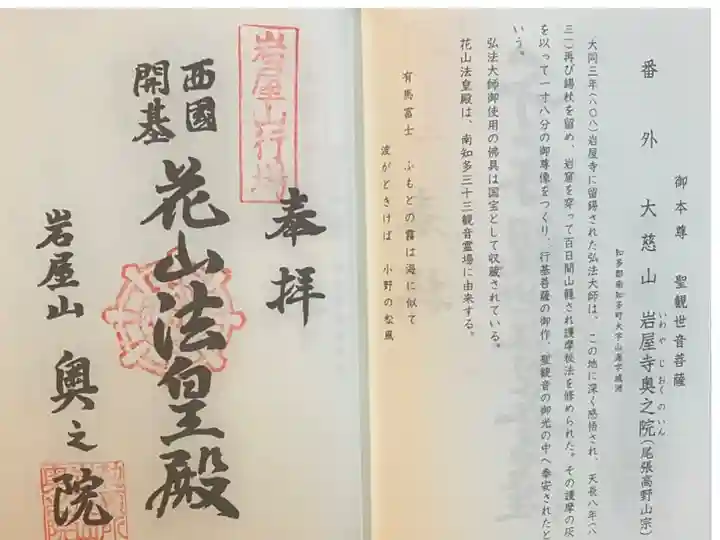 番外 大慈山 岩屋寺奥之院(尾張高野山宗)
いわや じ おく の いん
御本尊 聖観世音菩薩
知多郡南知多町大字山海字城洲
大同三年(八〇八)岩屋寺に留錫された弘法大師は、この地に深く感悟され、天長八年(八
三一)再び錫杖を留め、岩窟を穿って百日間山籠され護摩秘法を修められた。その護摩の灰
を以って一寸八分の御尊像をつくり、行基菩薩の御作、聖観音の御光の中へ奉安されたと
いう。
弘法大師御使用の佛具は国宝として収蔵されている。
花山法皇殿は、南知多三十三観音霊場に由来する。
有馬富士 ふもとの霧は海に似て
波かときけば 小野の松風
奉拝
岩屋山行場
西國
開基
花山法皇殿
岩屋山 奥之院